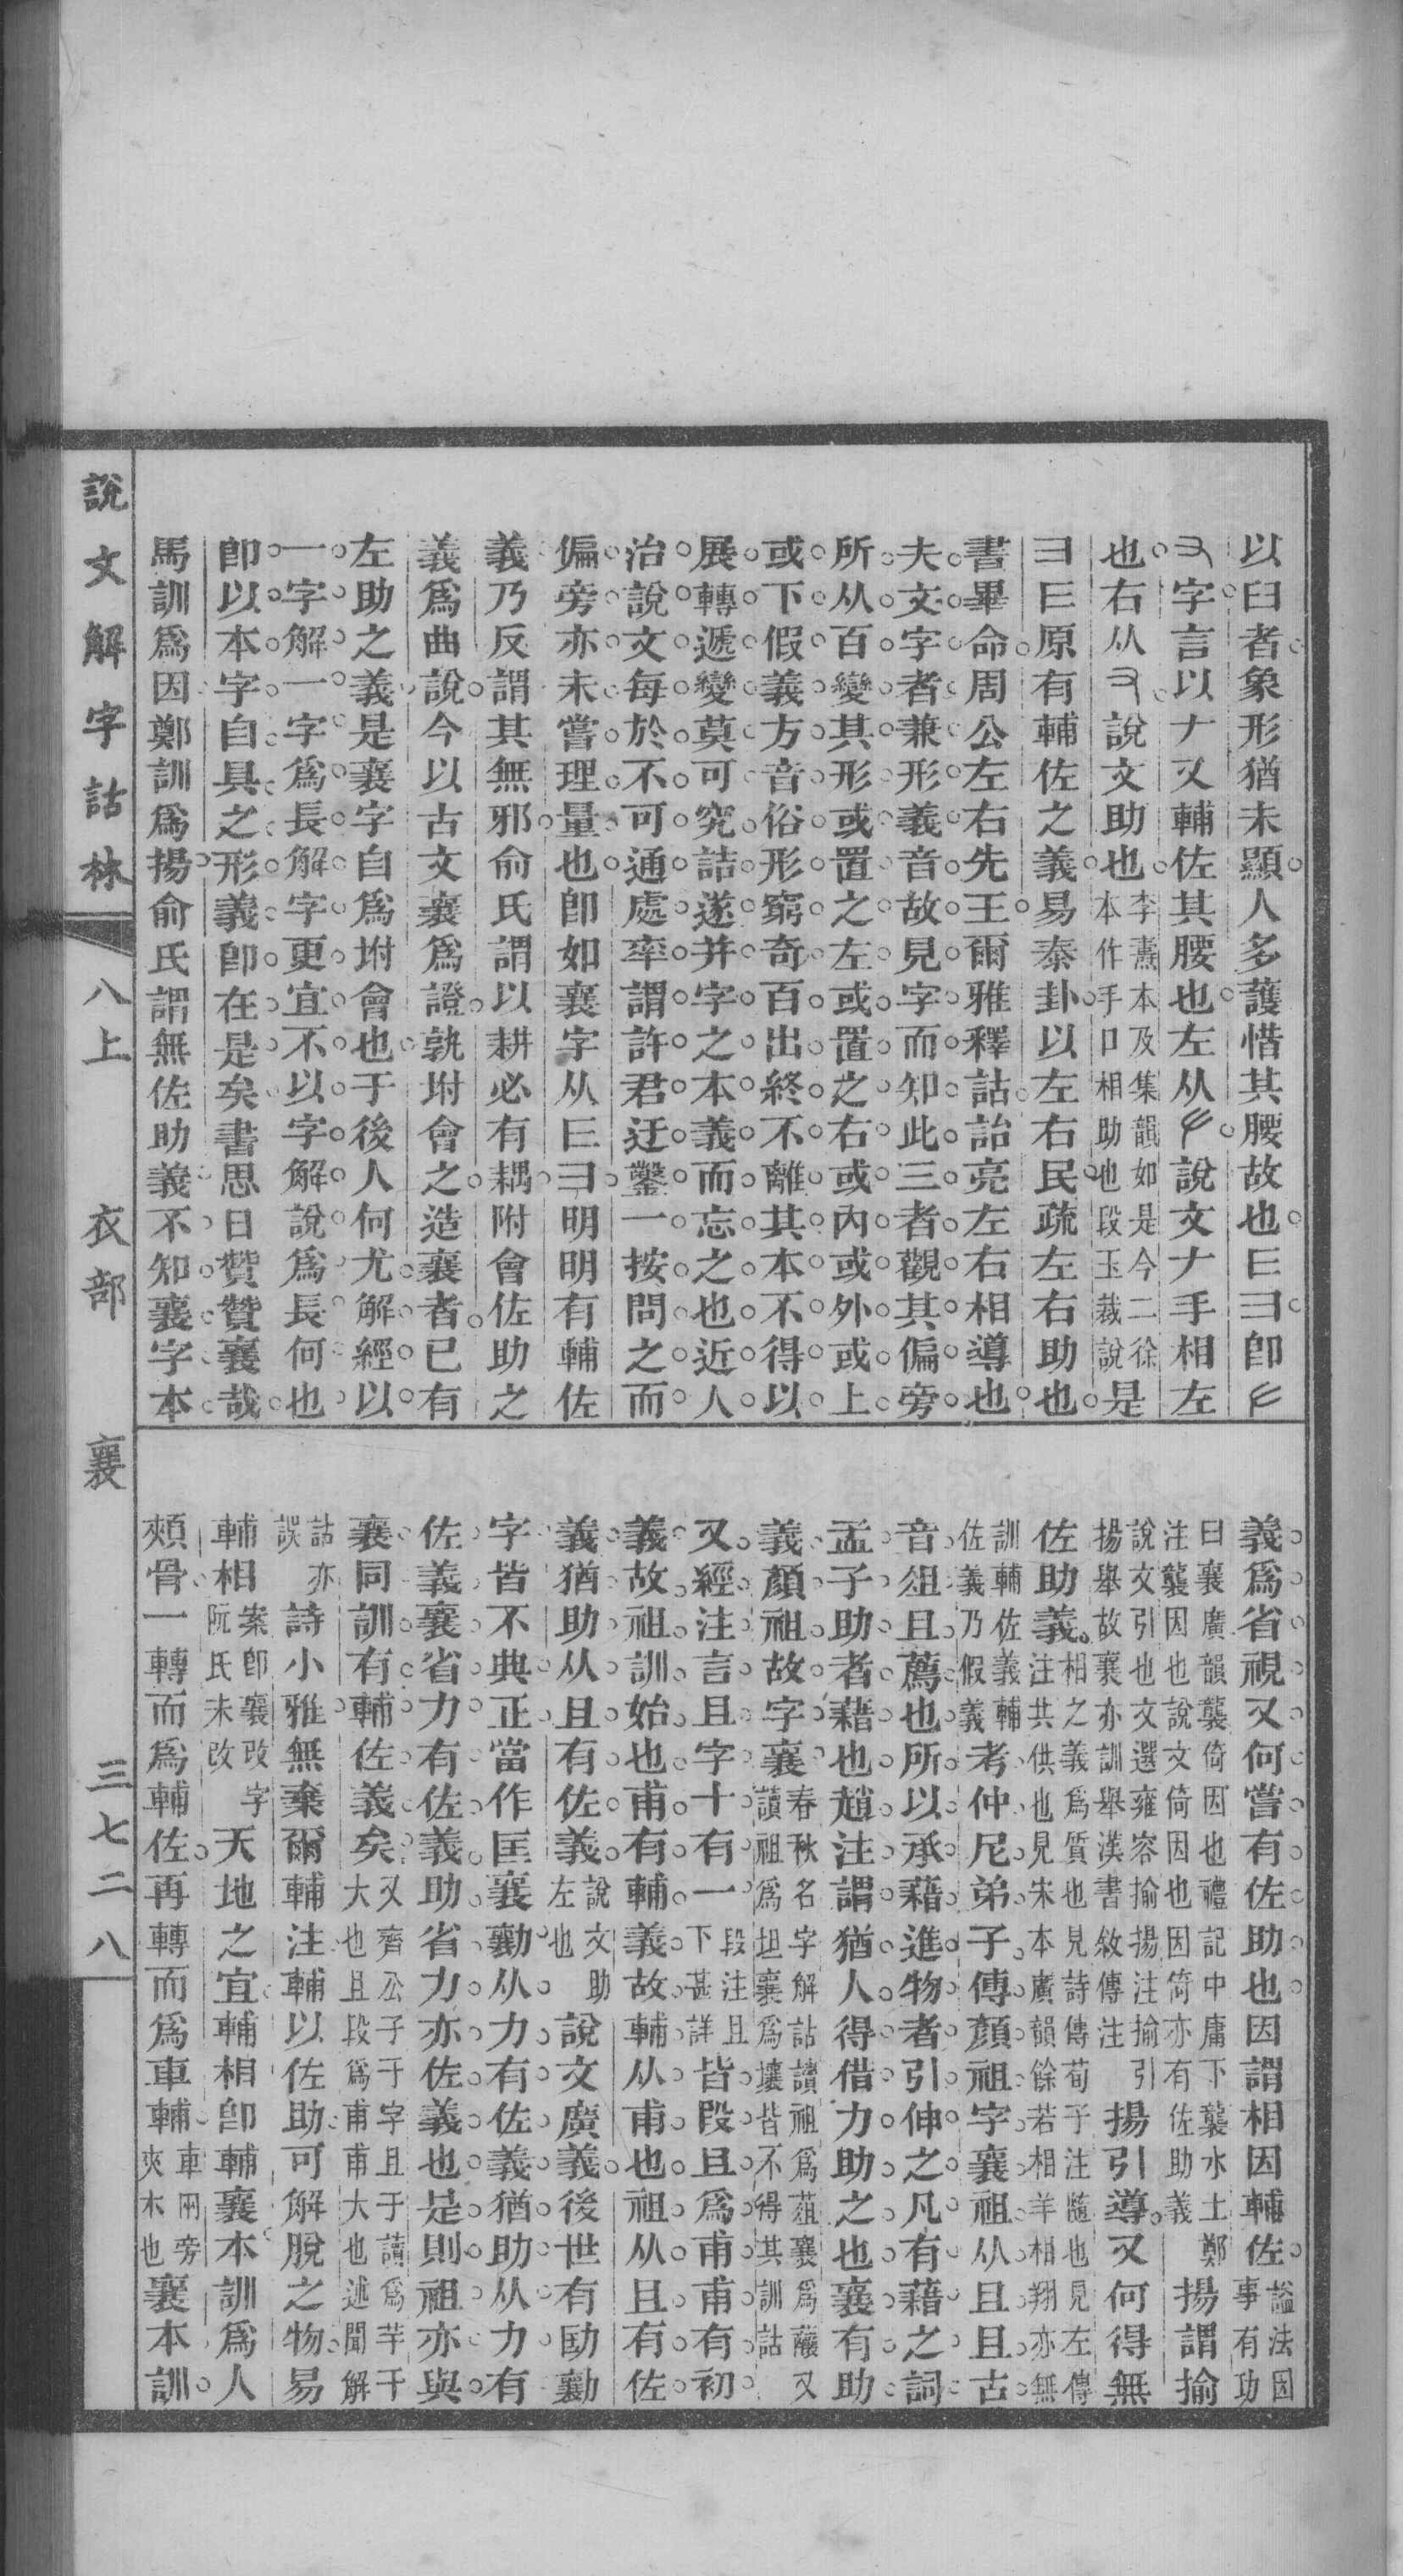 以𦥑者象形猶未顯人多護惜其腰故也𠂇彐卽𠂇
又字言以𠂇又輔佐其腰也左从𠂇說文𠂇手相左
也右从又說文助也本作手口相助也段玉裁說李燾本及集韻如是今二徐是
彐𠂇原有輔佐之義易泰卦以左右民疏左右助也
書畢命周公左右先王爾雅釋詁詔亮左右相導也
夫文字者兼形義音故見字而知此三者觀其偏旁
所从百變其形或置之左或置之右或內或外或上
或下假義方音俗形窮奇百出終不離其本不得以
展轉遞變莫可究詰遂并字之本義而忘之也近人
治說文每於不可通處率謂許君迂鑿一按問之而
偏旁亦未嘗理量也卽如襄字从𠂇彐明明有輔佐
義乃反謂其無邪俞氏謂以耕必有耦附會佐助之
義爲曲說今以古文襄爲證孰坿會之造襄者已有
左助之義是襄字自爲坿會也于後人何尤解經以
一字解一字爲長解字更宜不以字解說爲長何也
卽以本字自具之形義卽在是矣書思日贊贊襄哉
馬訓爲因鄭訓爲揚俞氏謂無佐助義不知襄字本
義爲省視又何嘗有佐助也因謂相因輔佐諡法因事有功
曰襄廣韻襲倚因也禮記中庸下襲水土鄭注襲因也說文倚因也因倚亦有佐助義揚謂揄
說文引也文選雍容揄揚注揄引揚舉故襄亦訓舉漢書敘傳注揚引導又何得無
佐助義相之義爲質也見詩傳荀子注隨也見左傳注共供也見宋本廣韻餘若相羊相翔亦無
訓輔佐義輔佐義乃假義考仲尼弟子傳顏祖字襄祖从且且古
音俎且薦也所以承藉進物者引伸之凡有藉之詞
孟子助者藉也趙注謂猶人得借力助之也襄有助
義顏祖故字襄春秋名字解詁讀祖爲葅襄爲釀又讀祖爲坦襄爲壤皆不得其訓詁
又經注言且字十有一段注且下甚詳皆段且爲甫甫有初
義故祖訓始也甫有輔義故輔从甫也祖从且有佐
義猶助从且有佐義說文助左也說文廣義後世有劻勷
字皆不典正當作匡襄勷从力有佐義猶助从力有
佐義襄省力有佐義助省力亦佐義也是則祖亦與
襄同訓有輔佐義矣又齊公子于字且于讀爲芋于大也且段爲甫甫大也述聞解
詁亦誤詩小雅無棄爾輔注輔以佐助可解脫之物易
輔相案卽襄改字阮氏未改天地之宜輔相卽輔襄本訓爲人
頰骨一轉而爲輔佐再轉而爲車輔車兩旁夾木也襄本訓
說文解字詁林 八上 衣部 襄 三七二八